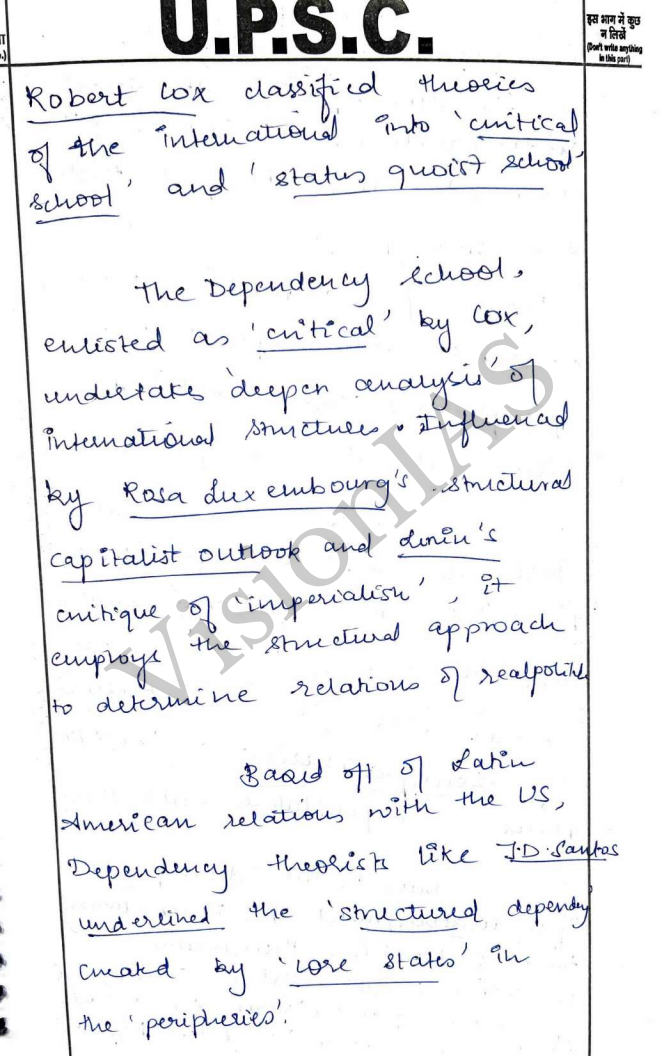 U.P.S.C.
इस भाग में कुछ
न लिखें
(Don't write anything
in this part)
Robert Cox classified theories
of the international into 'critical
school' and 'status quoist school'
The Dependency school,
enlisted as 'critical' by Cox,
undertakes 'deeper analysis' of
international structures. Influenced
by Rosa Luxembourg's structural
capitalist outlook and Lenin's
critique of 'imperialism', it
employs the structural approach
to determine relations of realpolitik
Based off of Latin
American relations with the US,
Dependency theorists like T.D. Santos
underlined the 'structured dependency'
created by 'core states' in
the 'peripheries'.
VisionIAS